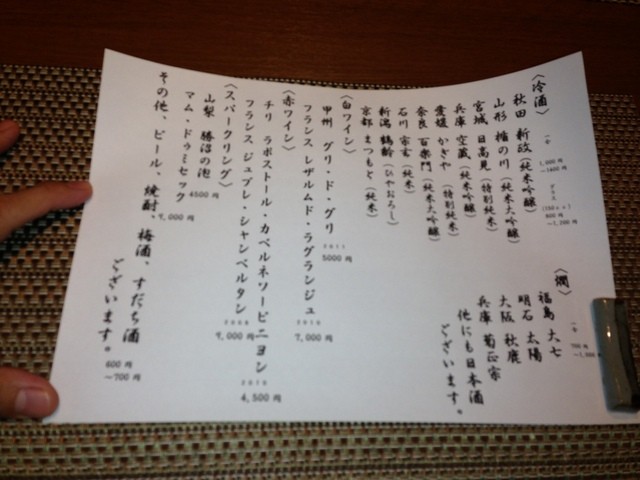 〈冷酒〉
一合 1,000円〜1400円
グラス(150cc) 600円〜1,200円
秋田 新政(純米吟醸)
山形 楯の川(純米大吟醸)
宮城 日高見(特別純米)
兵庫 空蔵(純米吟醸)
愛媛 かぎや(特別純米)
奈良 百楽門(純米大吟醸)
石川 宗玄(純米)
新潟 鶴齢(ひやおろし)
京都 まつもと(純米)
〈燗〉
一合 700円
福島 大七
明石 太陽
大阪 秋鹿
兵庫 菊正宗
他にも日本酒
ございます。
〈白ワイン〉
甲州 グリ・ド・グリ 2011 5000円
フランス レザルムド・ラグランジュ 2010 7,000円
〈赤ワイン〉
チリ ラポストール・カベルネソービニヨン 2010 4,500円
フランス ジュブレ・シャンベルタン 2008 9,000円
〈スパークリング〉
山梨 勝沼の泡 4500円
マム・ドゥミセック 7,000円
その他、ビール、焼酎、梅酒、すだち酒
ございます。
600円〜700円